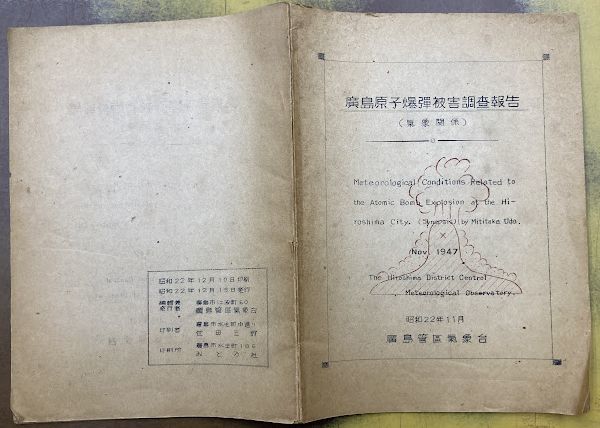 廣島原子爆彈被害調査報告
(氣象關係)
Meteorological Conditions Related to
the Atomic Bomb Explosion at the Hi-
roshima City. (Synopsis) by Mititaka Uda.
×
Nov. 1947.
The Hiroshima District Central
Meteorological Observatory.
昭和22年11月
廣島管區氣象台
昭和22年12月10日印刷
昭和22年12月15日発行
廣島市江波町60
廣島管區氣象台
印刷者
廣島市水主町
印刷所
廣島市水主町